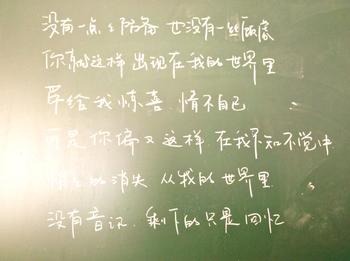 没有一点点防备 也没有一丝顾虑
你就这样 出现在我的世界里
带给我惊喜 情不自已
可是你偏又这样 在我不知不觉中
悄悄的消失 从我的世界里
没有音讯 剩下的只是回忆